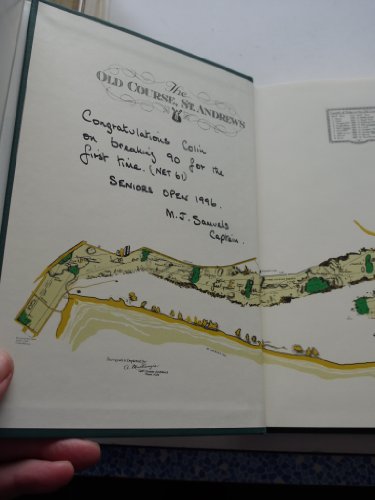 The
OLD COURSE, ST. ANDREWS
Congratulations Colin
on breaking 90 for the
first time. (NET 61)
SENIORS OPEN 1996.
M.J. Samuels
Captain.